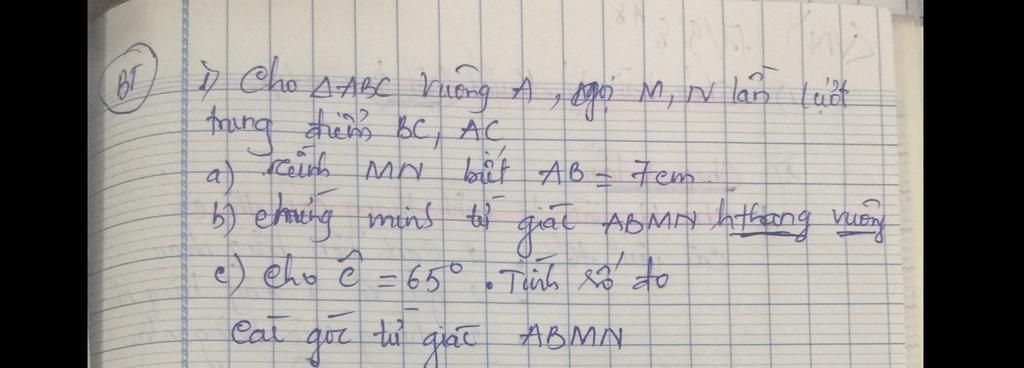 BT 1) Cho ΔABC vuông A, gọi M, N lần lượt
trung điểm BC, AC
a) tính MN biết AB = 7cm
b) chứng minh tứ giác ABMN hthang vuông
c) Cho Ĉ = 65°. Tính số đo
các góc tứ giác ABMN